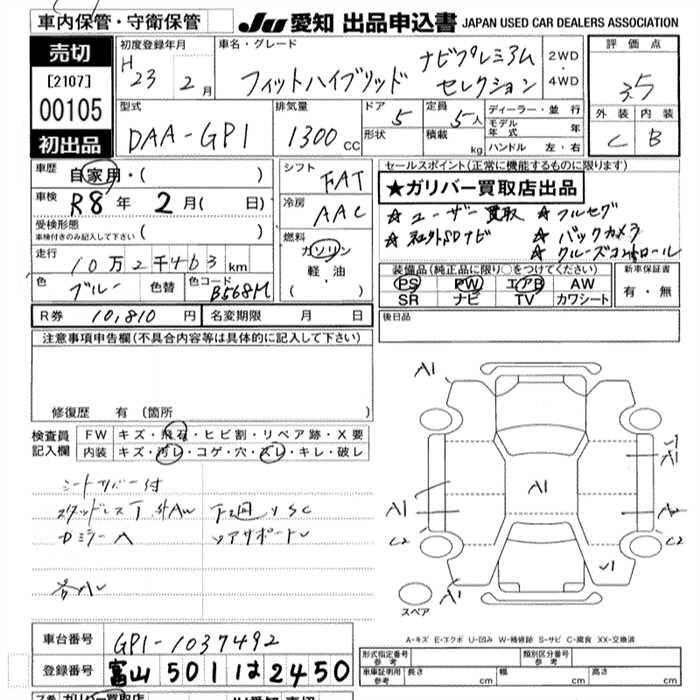 車内保管・守衛保管
JU 愛知 出品申込書 JAPAN USED CAR DEALERS ASSOCIATION
売切
[2107]
00105
初出品
初度登録年月
H23年 2月
車名・グレード
フィットハイブリッド ナビプレミアムセレクション
2WD・4WD
評価点
3.5
外装 内装
C B
型式
DAA-GP1
排気量
1300 CC
ドア 5
形状
定員 5人
積載 kg
ディーラー・並行
モデル年式 年
ハンドル 左・右
車歴 自家用・( )
車検 R8年 2月( 日)
受検形態
車検付きのみ記入して下さい ( )
走行 10万2千463 km
色 ブルー 色替 色コード B568M
シフト FAT
冷房 AAC
燃料
ガソリン
軽・油
( )
R券 10,810 円 名変期限 月 日
セールスポイント(正常に機能するものに限ります)
★ガリバー買取店出品
☆ ユーザー買取 ☆ フルセグ
☆ 社外SDナビ ☆ バックカメラ
☆ クルーズコントロール
装備品(純正品に限り○をつけてください) 新車保証書
PS PW エアB AW 有・無
SR ナビ TV カワシート
後日品
注意事項申告欄(不具合内容等は具体的に記入して下さい)
修復歴 有 (箇所 )
検査員記入欄
FW キズ・飛石・ヒビ割・リペア跡・X要
内装 キズ・汚レ・コゲ・穴・スレ・キレ・破レ
シートカバー付
A1
A1
A1
A1
A2
C2
C2
A1
スペア
A-キズ E-エクボ U-凹み W-補修跡 S-サビ C-腐食 XX-交換済
車台番号 GP1-1037492
登録番号 富山 501 は 2450
形式指定番号 参考 類別区分番号 参考
車庫証明用 参考 長さ cm 幅 cm 高さ cm
ガリバー買取店 JU愛知 売切